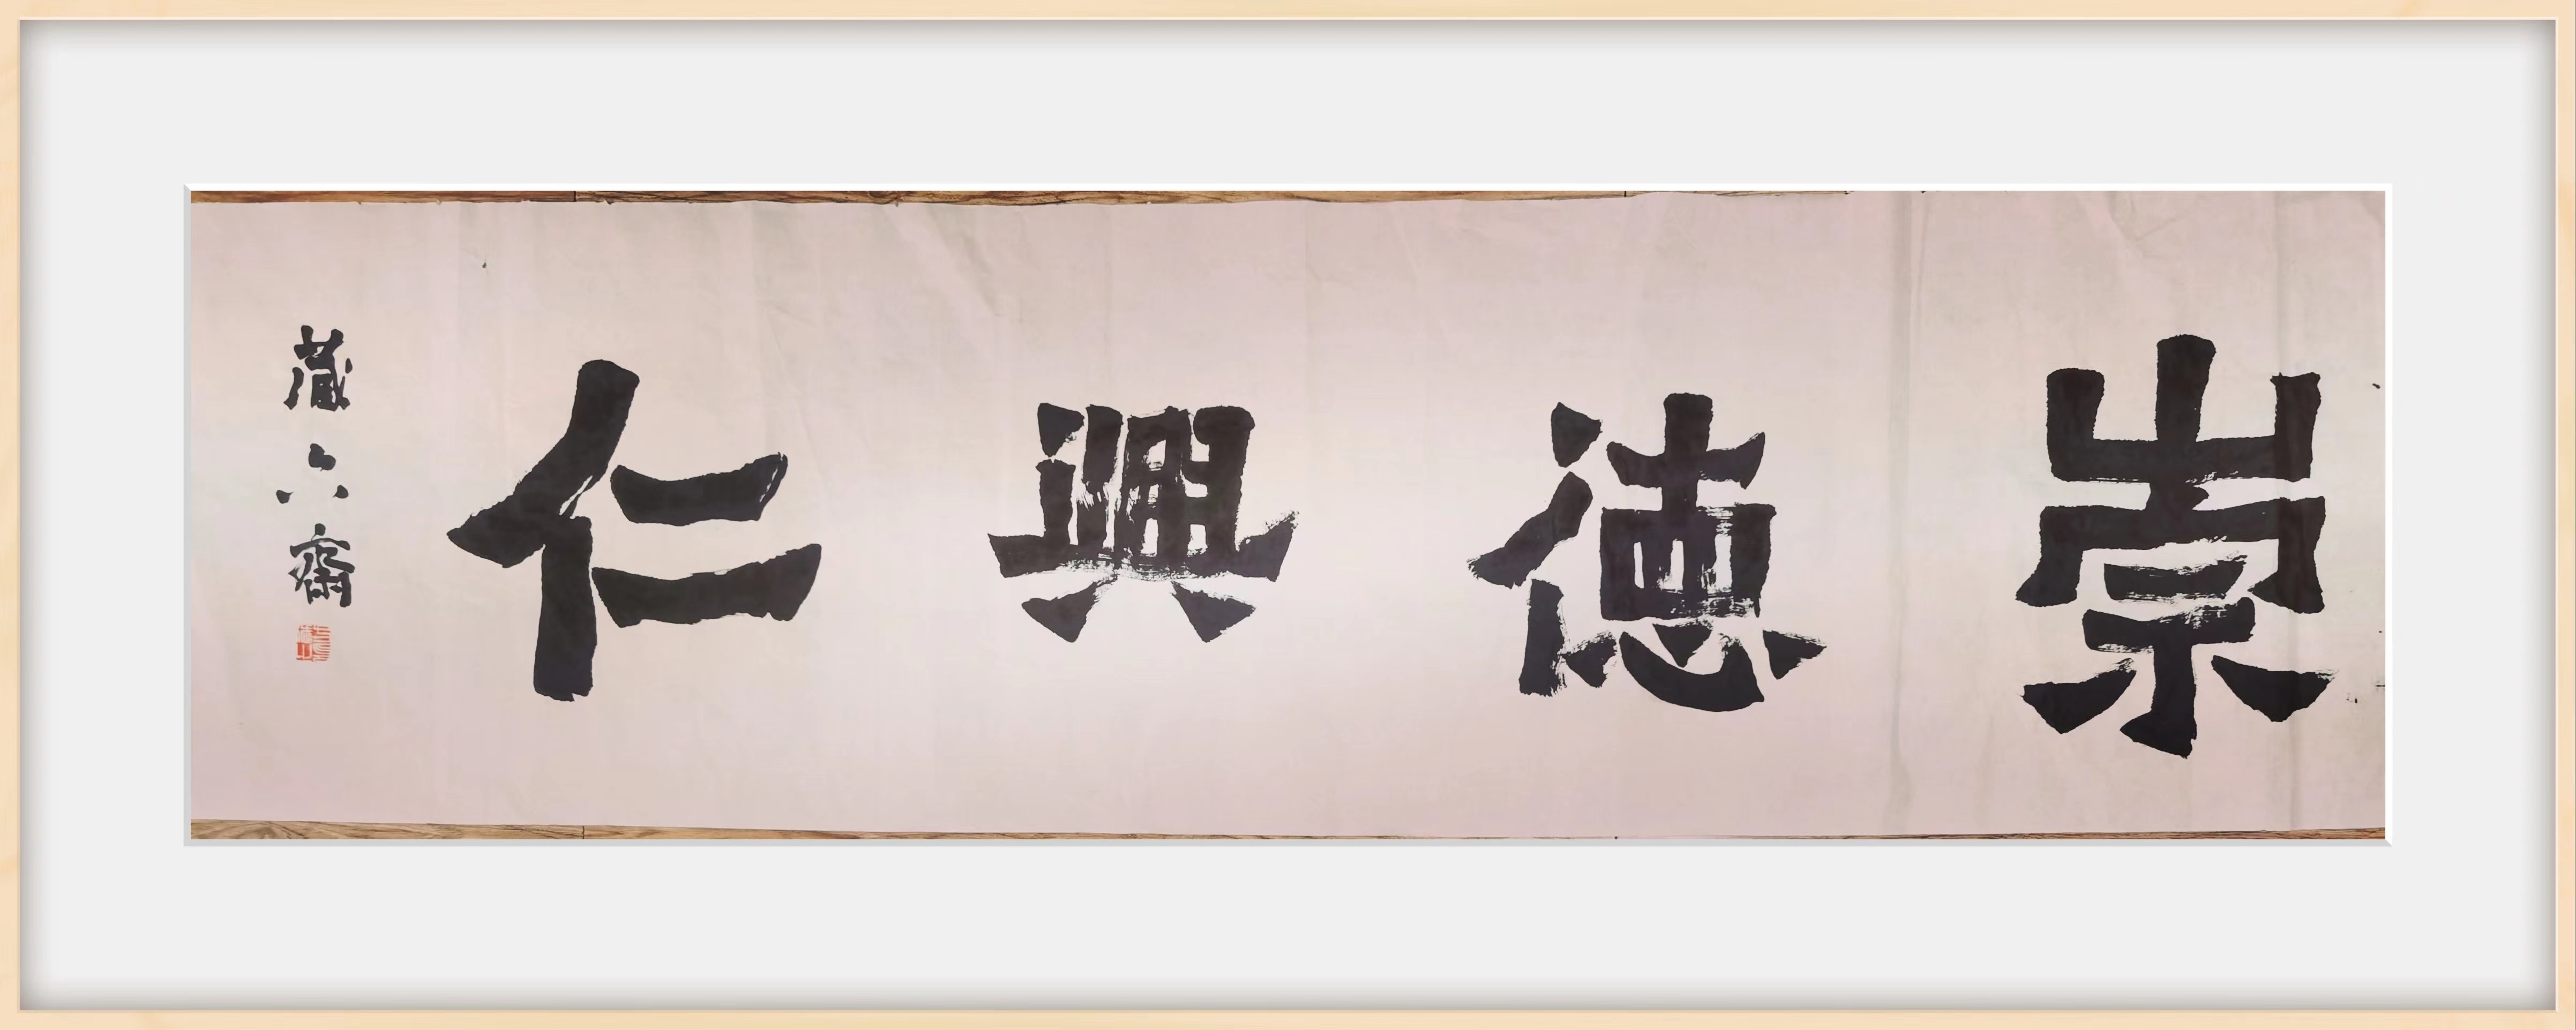 崇德興仁
藏六齋